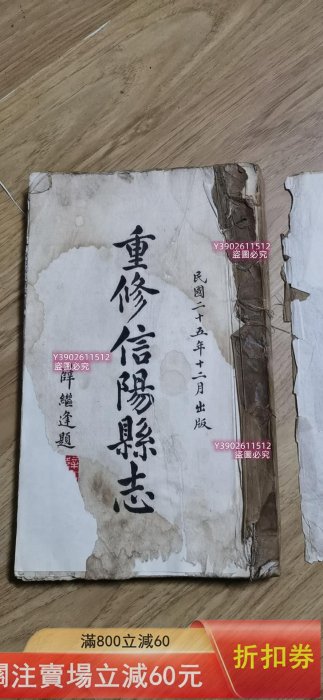 民國二十五年十二月出版
重修信陽縣志
薛繼逢題
Y3902611512
盜圖必究
Y3902611512
盜圖必究
Y3902611512
盜圖必究
滿800立減60
關注賣場立減60元
折扣券